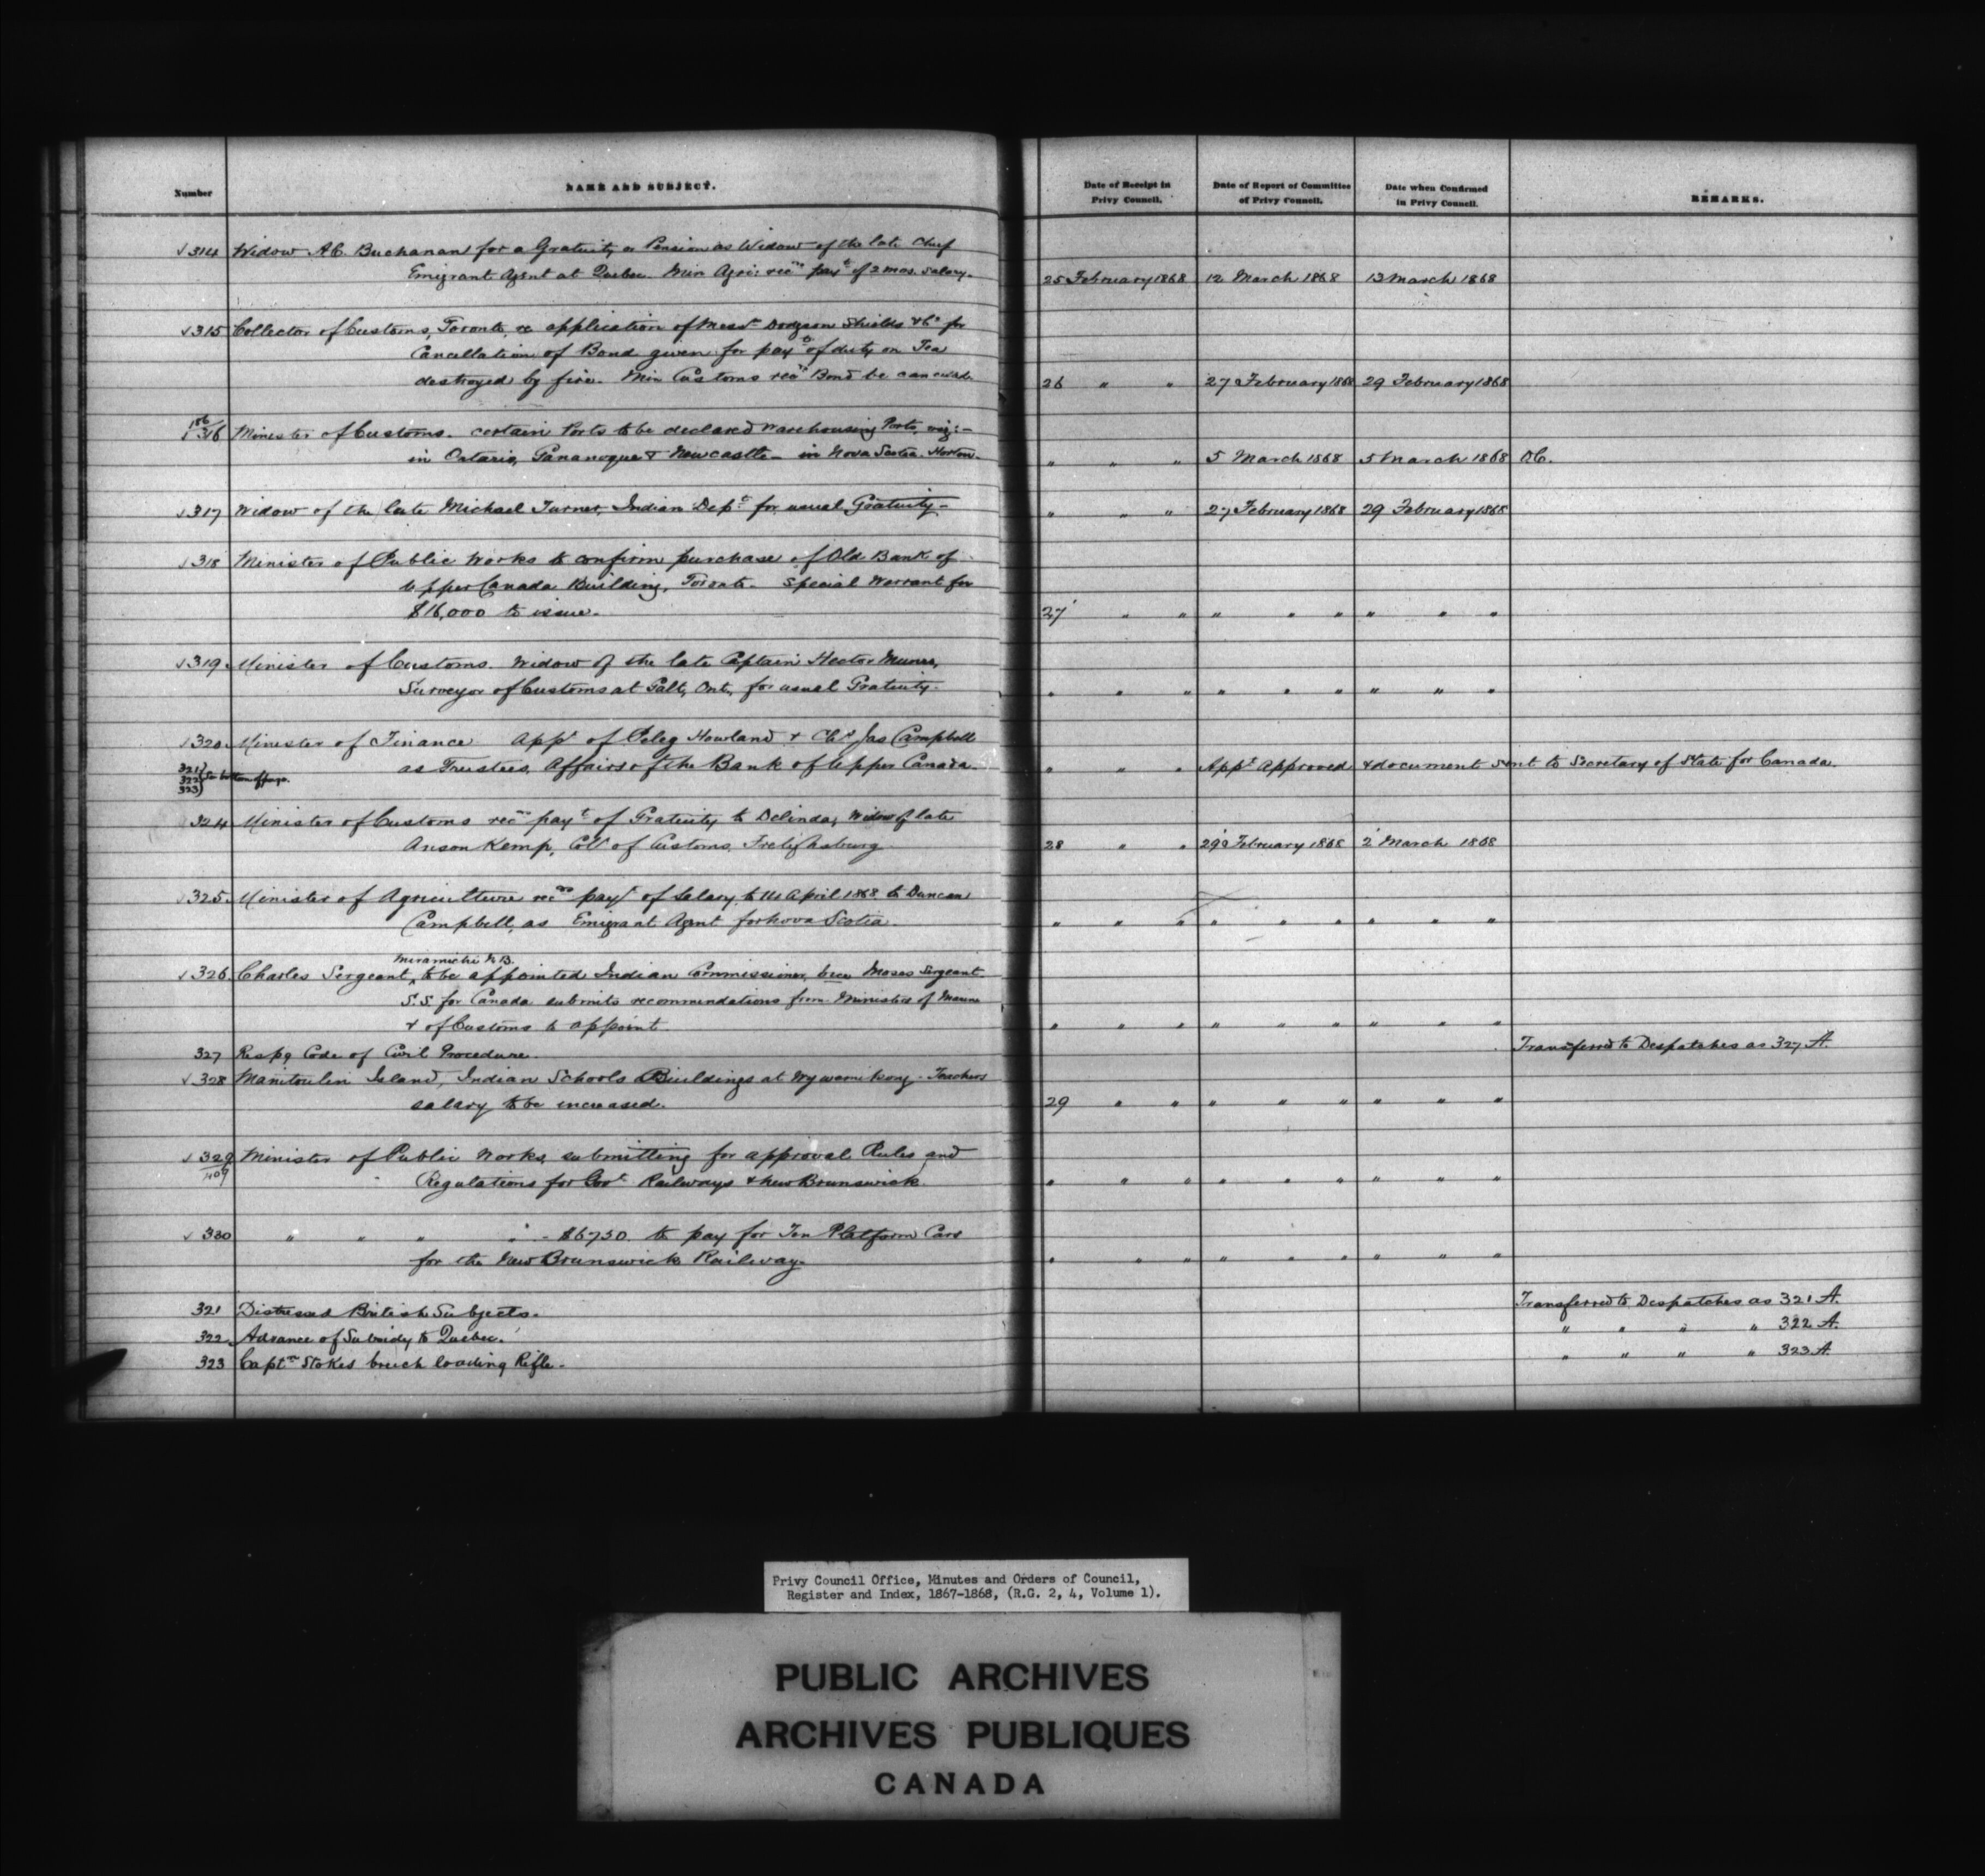 Number NAME AND SUBJECT. Date of Receipt in Privy Council. Date of Report of Committee of Privy Council. Date when Confirmed in Privy Council. REMARKS.
√ 314 Widow A.C. Buchanan for a Gratuity or Pension as Widow of the late Chief
Emigrant Agent at Quebec. Min Agric: recms payt of 2 mos. salary. 25 February 1868 12 March 1868 13 March 1868
√ 315 Collector of Customs, Toronto, re application of Messrs Dodgson Shields & Co for
Cancellation of Bond given for payt of duty on Tea
destroyed by fire. Min Customs recms Bond be cancelled. 26 " " 27 February 1868 29 February 1868
186/
√ 316 Minister of Customs. certain Ports to be declared Warehousing Ports, viz:-
in Ontario, Gananoque & Newcastle - in Nova Scotia. Horton. " " " 5 March 1868 5 March 1868 OC.
√ 317 Widow of the late Michael Turner, Indian Dept for usual Gratuity- " " " 27 February 1868 29 February 1868
√ 318 Minister of Public Works to confirm purchase of Old Bank of
Upper Canada Building, Toronto. Special Warrant for
$16,000 to issue. 27 " " " " " " " "
√ 319 Minister of Customs. Widow of the late Captain Hector Munro,
Surveyor of Customs at Galt, Ont, for usual Gratuity. " " " " " " " " "
√ 320 Minister of Finance Appt of Peleg Howland & Chs Jas Campbell
as Trustees, Affairs of the Bank of Upper Canada. " " " Appt approved & document sent to Secretary of State for Canada.
321
322 } see bottom of page.
323
324 Minister of Customs recms payt of Gratuity to Delinda, Widow of late
Anson Kemp, Collr of Customs, Frelighsburg 28 " " 29 February 1868 2 March 1868
√ 325. Minister of Agriculture recms payt of Salary to 1st April 1868 to Duncan
Campbell, as Emigrant Agent for Nova Scotia. " " " " " " " " "
Miramichi N.B.
√ 326. Charles Sergeant, ^ to be appointed Indian Commissioner, vice Moses Sergeant.
S.S. for Canada submits recommendations from Ministers of Marine
& of Customs to appoint. " " " " " " " " "
327 Respg Code of Civil Procedure. Transferred to Despatches as 327 A.
√ 328 Manitoulin Island, Indian Schools Buildings at Wywamikong - Teachers
salary to be increased. 29 " " " " " " " "
√ 329 Minister of Public Works, submitting for approval Rules and
409 Regulations for Govt Railways & New Brunswick. " " " " " " " " "
√ 330 " " " " - $6750. to pay for Ten Platform Cars
for the New Brunswick Railway. " " " " " " " " "
321 Distressed British Subjects. Transferred to Despatches as 321 A.
322 Advance of Subsidy to Quebec. " " " " 322 A.
323 Captn Stokes breech loading Rifle. " " " " 323 A.
Privy Council Office, Minutes and Orders of Council,
Register and Index, 1867-1868, (R.G. 2, 4, Volume 1).
PUBLIC ARCHIVES
ARCHIVES PUBLIQUES
CANADA